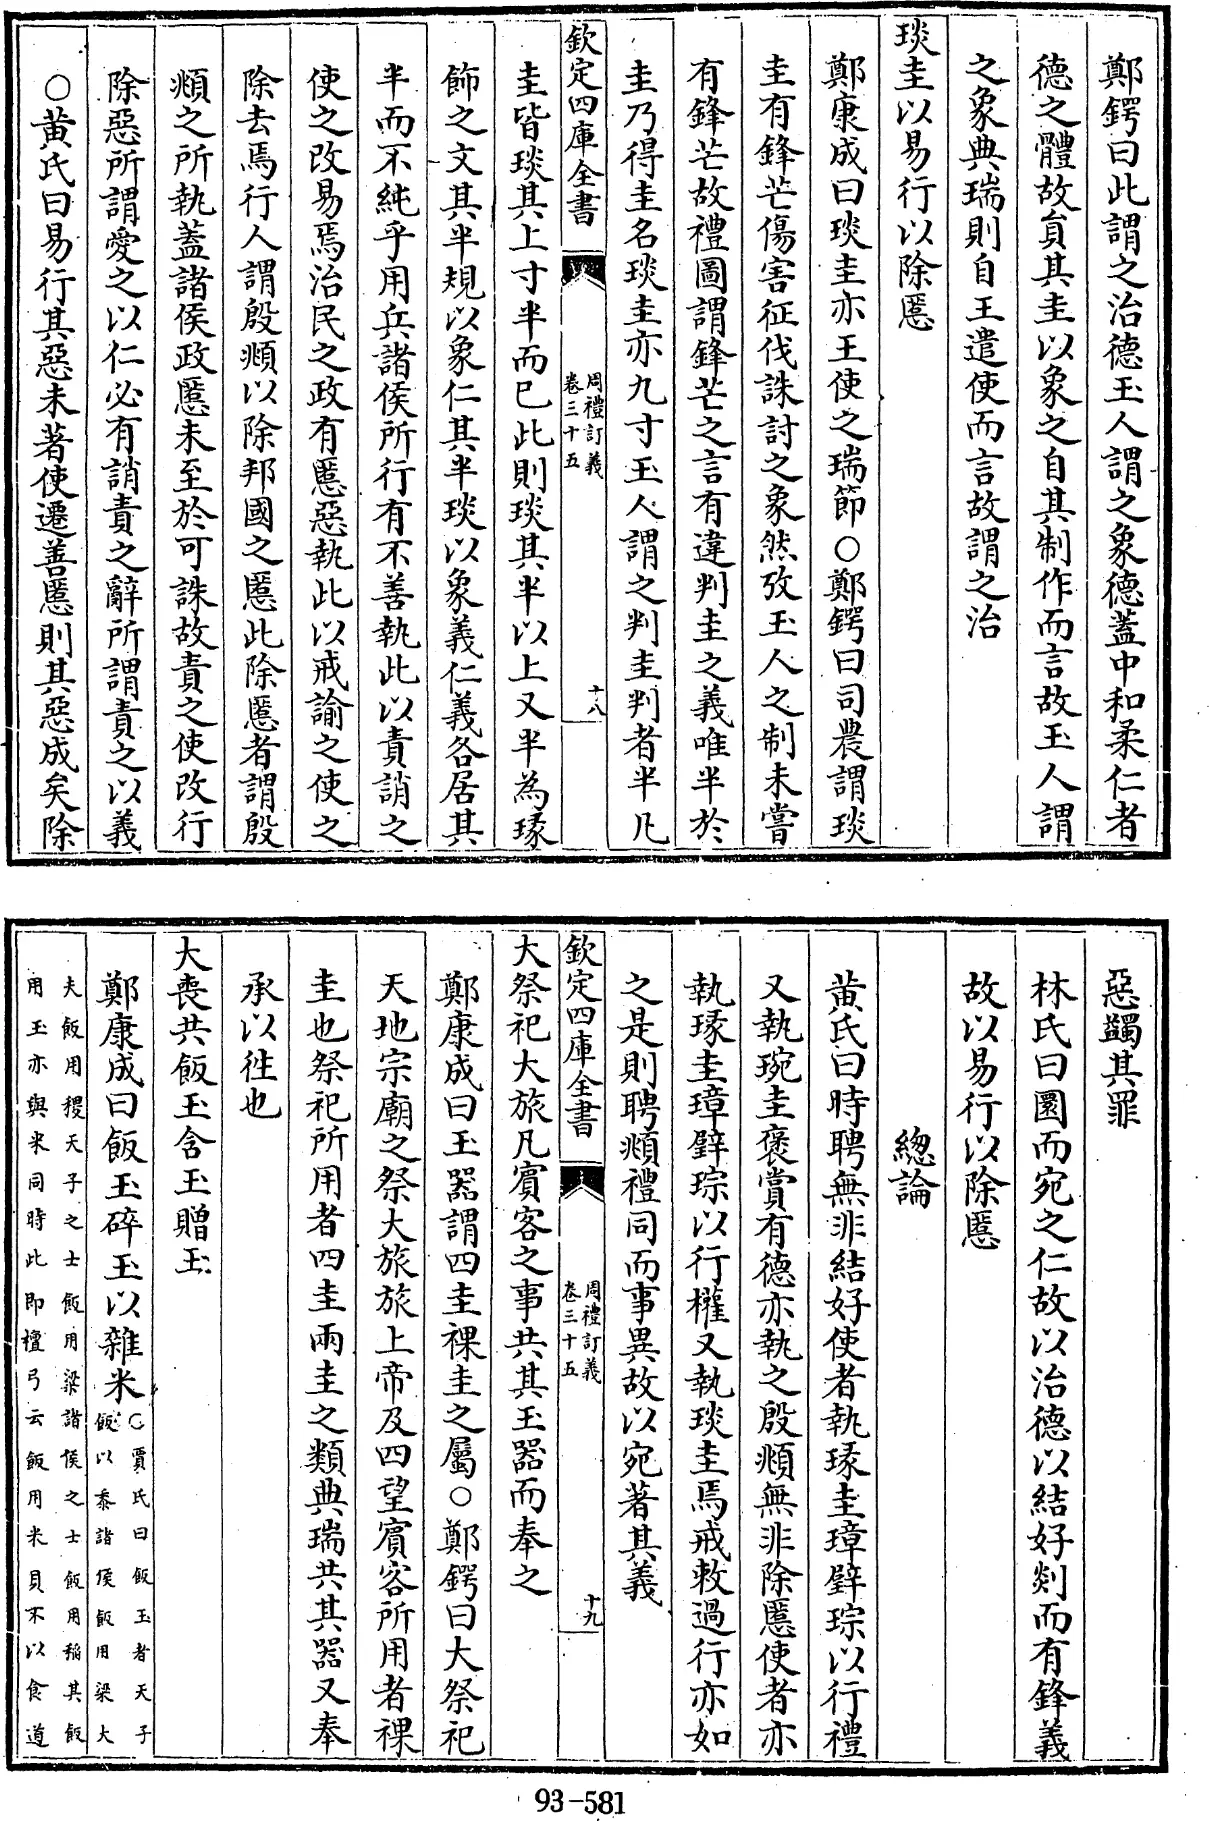 鄭鍔曰此謂之治德玉人謂之象德蓋中和柔仁者
德之體故貟其圭以象之自其制作而言故玉人謂
之象典瑞則自王遣使而言故謂之治
琰圭以易行以除慝
鄭康成曰琰圭亦王使之瑞節○鄭鍔曰司農謂琰
圭有鋒芒傷害征伐誅討之象然攷玉人之制未嘗
有鋒芒故禮圖謂鋒芒之言有違判圭之義唯半於
圭乃得圭名琰圭亦九寸玉人謂之判圭判者半凡
欽定四庫全書
周禮訂義
卷三十五
十八
圭皆琰其上寸半而已此則琰其半以上又半為瑑
飾之文其半規以象仁其半琰以象義仁義各居其
半而不純乎用兵諸侯所行有不善執此以責誚之
使之改易焉治民之政有慝惡執此以戒諭之使之
除去焉行人謂殷頫以除邦國之慝此除慝者謂殷
頫之所執蓋諸侯政慝未至於可誅故責之使改行
除惡所謂愛之以仁必有誚責之辭所謂責之以義
○黄氏曰易行其惡未著使遷善慝則其惡成矣除
惡蠲其罪
林氏曰圜而宛之仁故以治德以結好剡而有鋒義
故以易行以除慝
總論
黄氏曰時聘無非結好使者執瑑圭璋璧琮以行禮
又執琬圭褒賞有德亦執之殷頫無非除慝使者亦
執瑑圭璋璧琮以行權又執琰圭焉戒敕過行亦如
之是則聘頫禮同而事異故以宛著其義
欽定四庫全書
周禮訂義
卷三十五
十九
大祭祀大旅凡賓客之事共其玉器而奉之
鄭康成曰玉器謂四圭祼圭之屬○鄭鍔曰大祭祀
天地宗廟之祭大旅旅上帝及四望賓客所用者祼
圭也祭祀所用者四圭兩圭之類典瑞共其器又奉
承以徃也
大喪共飯玉含玉贈玉
鄭康成曰飯玉碎玉以雜米○賈氏曰飯玉者天子
飯以黍諸侯飯用粱大
夫飯用稷天子之士飯用粱諸侯之士飯用稻其飯
用玉亦與米同時此即檀弓云飯用米貝不以食道